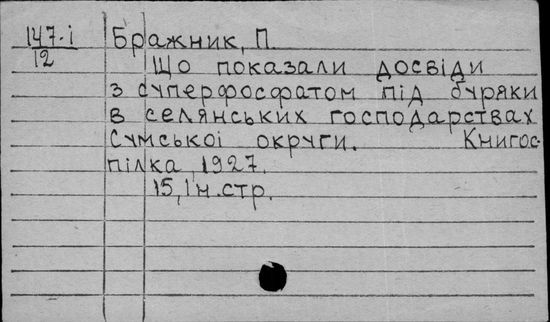 147.і Бражник, П.
12
Що показали досвіди
з суперфосфатом під буряки
в селянських господарствах
Сумської округи. Книгос-
пілка, 1927.
15, 1 н. стр.